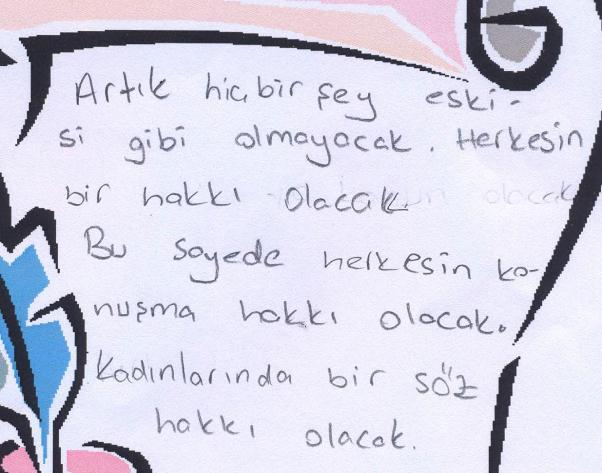 Artık hiçbir şey eski-
si gibi olmayacak. Herkesin
bir hakkı olacak
Bu sayede herkesin ko-
nuşma hakkı olacak.
Kadınlarında bir söz
hakkı olacak.